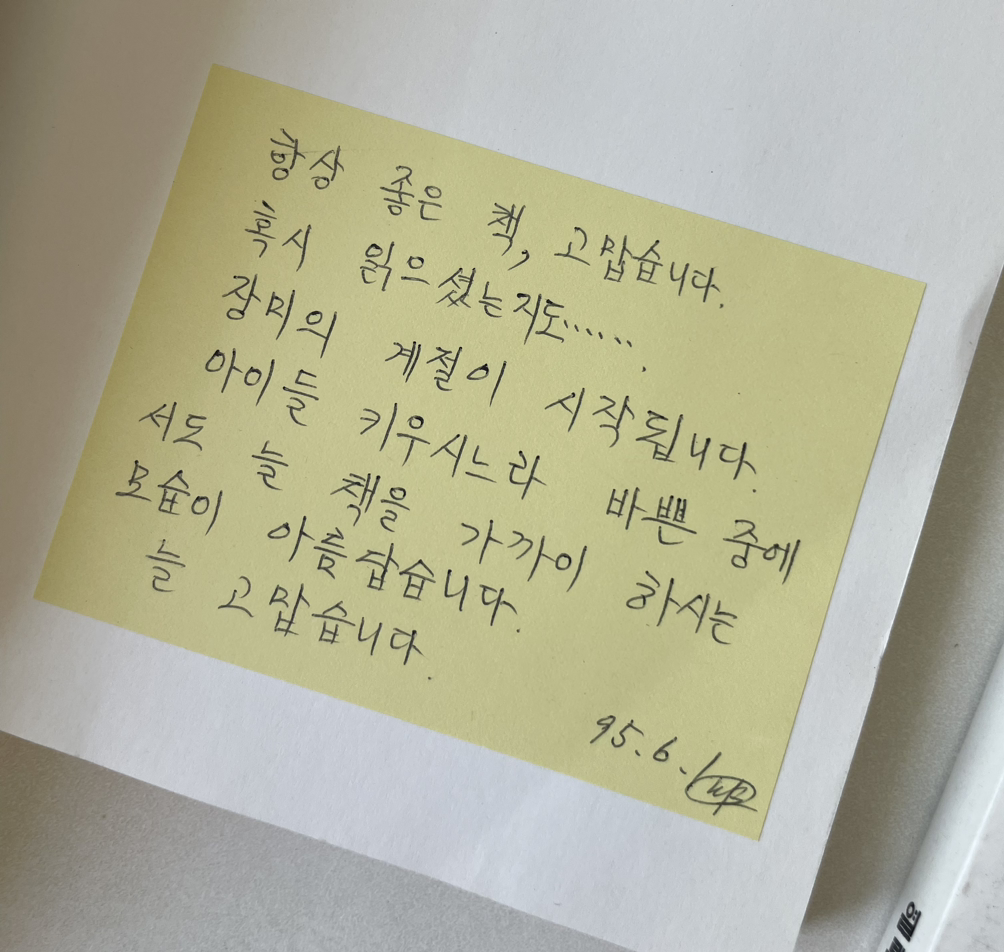 항상 좋은 책, 고맙습니다.
혹시 읽으셨는지도.......
장미의 계절이 시작됩니다.
아이들 키우시느라 바쁜 중에
서도 늘 책을 가까이 하시는
모습이 아름답습니다.
늘 고맙습니다.
95.6.1